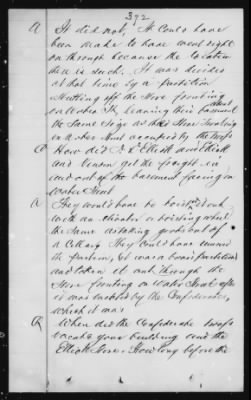 372
A It did not, It could have
been made to have went right
on through because the location
there is such. It was divided
at that time by a partition
shutting off the Store fronting
on Water St, leaving this basement
the same size as the Store fronting
on Water Street occupied by the troops
Q How did J. P. Elliott and
and get the freight in
and out of the basement facing on
Water Street
A They would have to hoist it out
with an elevator or hoisting wheel
the same as taking goods out of
a Cellar, They could have removed
the partition, it was a board partition
and taken it out through the
Store fronting on Water Street after
it was vacated by the Confederates,
which it was
Q When did the Confederate troops
vacate your building and the
Elliott Store. How long before the